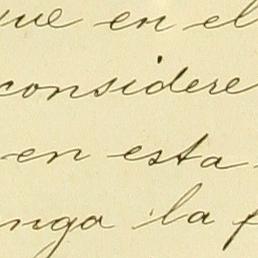 que en el
considere
en esta
nga la